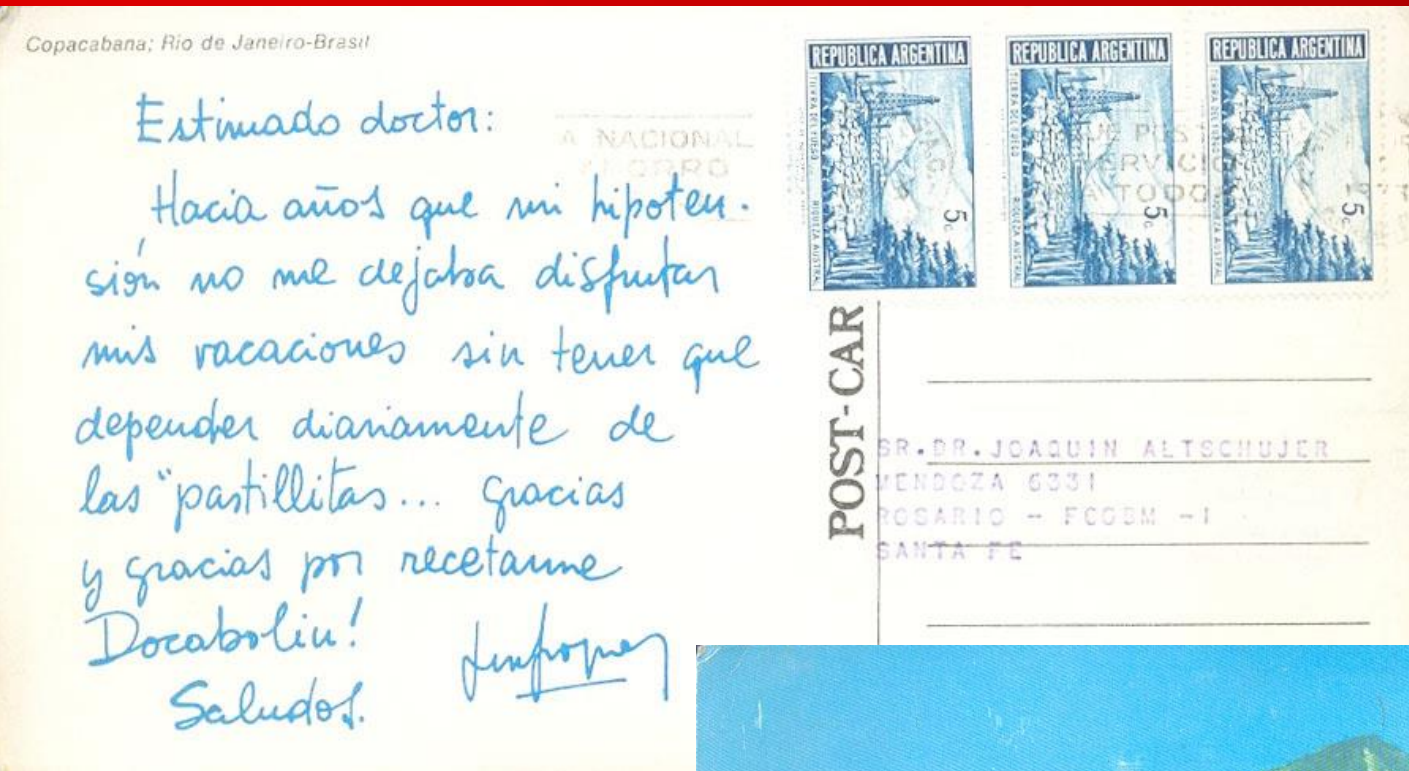 Copacabana; Rio de Janeiro-Brasil
Estimado doctor:
Hacia años que mi hipoten-
sión no me dejaba disfrutar
mis vacaciones sin tener que
depender diariamente de
las "pastillitas... gracias
y gracias por recetarme
Docabolin!
Saludos.
REPUBLICA ARGENTINA
TIERRA DEL FUEGO RIQUEZA AUSTRAL
5c
REPUBLICA ARGENTINA
TIERRA DEL FUEGO RIQUEZA AUSTRAL
5c
REPUBLICA ARGENTINA
TIERRA DEL FUEGO RIQUEZA AUSTRAL
5c
A NACIONAL
POST-CAR
SR.DR.JOAQUIN ALTSCHUJER
MENDOZA 6331
ROSARIO - FCGBM -1
SANTA FE